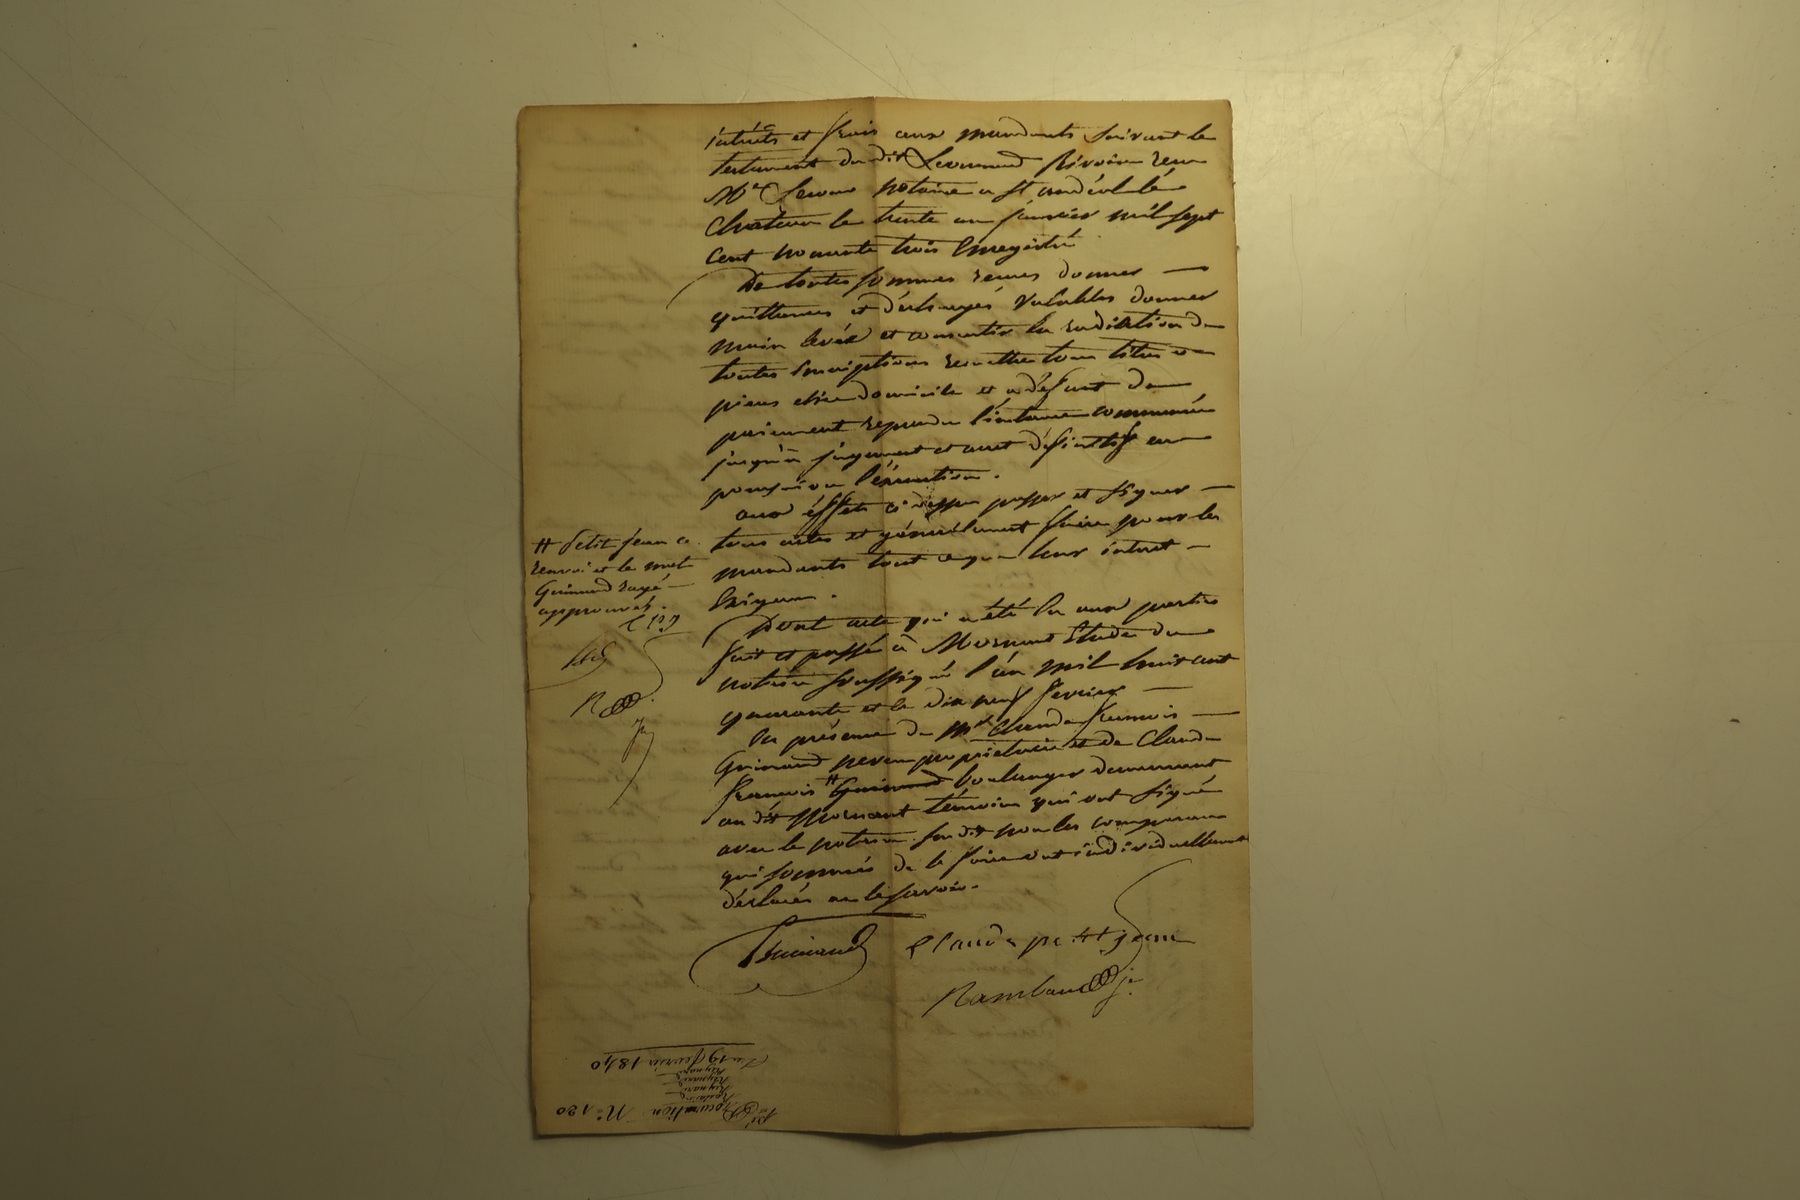 intérêts et frais aux mandants suivant le
testament du dit Leonnard Rivoire reçu
Me notaire a St andéol le
Chateau le trente un janvier mil sept
cent nonante trois Enregistré
De toutes sommes reçues donner —
quittances et décharges valables donner
main levée et consentir la radiation de
toutes Inscriptions remettre tous titres et
pieces elire domicile et a défaut de
paiement reprendre l'instance commencée
jusqu'a jugement et arret définitif en
poursuivre l'éxécution.
aux éffets ci dessus passer et signer —
tous actes et généralement faire pour les
mandants tout ce que leur intret —
Exigera.
Dont acte qui a été lu aux parties
fait et passé à Mornant Etude du
notaire soussigné l'an mil huit cent
quarante et le dix neuf fevrier —
En présence de Mrs Claude francois —
Guinand pere propriétaire et de Claude
francois # Guinand boulanger demeurant
au dit Mornant témoins qui ont signé
avec le notaire susdit non les comparants
qui sommés de le faire ont individuellement
déclarés ne le savoir.
# Petit jean ce
renvoi et le mot
Guinand rayé —
approuvés.
C P J
R
Guinand Claude petit jean
Rambaud je
Procuration N° 120
Reynard
Reynard
Du 19 fevrier 1840